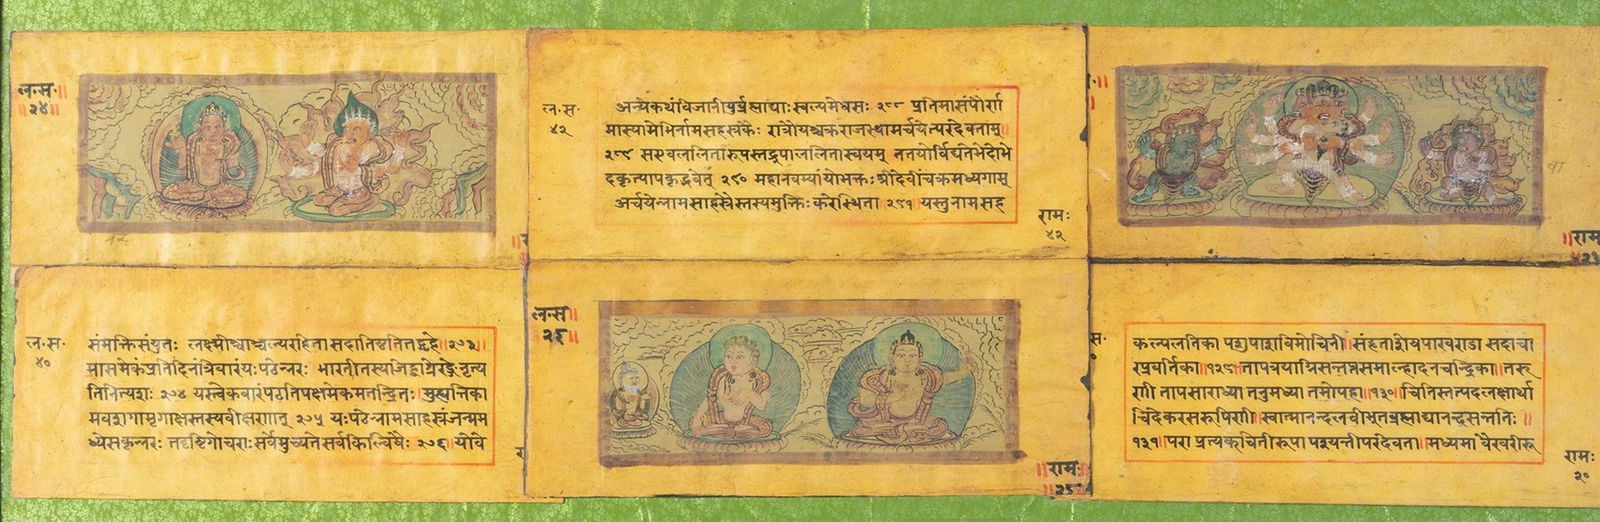 ल॰स॰
॥२४॥
ल॰ स॰
४२
अन्येकथंविजानीयुर्ब्रह्माद्याःस्वल्पमेधसः २८८ प्रतिमासंपौर्णा
मास्यामेभिर्नामसहस्रकैः रात्रौयश्चक्रराजस्थामर्चयेत्परदेवताम्॥
२८९ सएवललितारूपस्तद्रूपाललितास्वयम् नतयोर्विद्यतेभेदोभे
दकृत्पापकृद्भवेत् २९० महानवम्यांयोभक्तःश्रीदेवींचक्रमध्यगाम्
अर्चयेन्नामसाहस्रैस्तस्यमुक्तिः करेस्थिता॥२९१॥यस्तुनामसह
रामः
४२
॥राम
ल॰ स॰
४०
मासमेकंप्रतिदिनंत्रिवारंयः पठेन्नरः भारतीतस्यजिह्वाग्रेरङ्गेनृत्य
तिनित्यशः २७४ यस्त्वेकवारंपठतिपक्षमेकमतन्द्रितः मुह्यन्तिका
मवशगामृगाक्ष्यस्तस्यवीक्षणात् २७५ यः पठेन्नामसाहस्रंजन्मम
ध्येसकृन्नरः तद्दृष्टिगोचराः सर्वेमुच्यतेसर्वकिल्बिषैः २७६॥योवे
ल॰स॥
२५
॥रामः॥
॥२५॥
स॰
कल्पलतिका पशुपाशविमोचिनी॥संहृताशेषपाखण्डा सदाचा
रप्रवर्तिका॥१२९॥तापत्रयाग्निसन्तप्तसमाल्हादनचन्द्रिका॥तरु
णी तापसाराध्या तनुमध्या तमोपहा॥१३०॥चितिस्तत्पदलक्ष्यार्था
चिदेकरसरूपिणी॥स्वात्मानन्दलवीभूतब्रह्माद्यानन्दसन्ततिः॥
१३१॥परा प्रत्यक्चितीरूपा पश्यन्तीपरदेवता॥मध्यमा वैखरीरू
रामः
२०